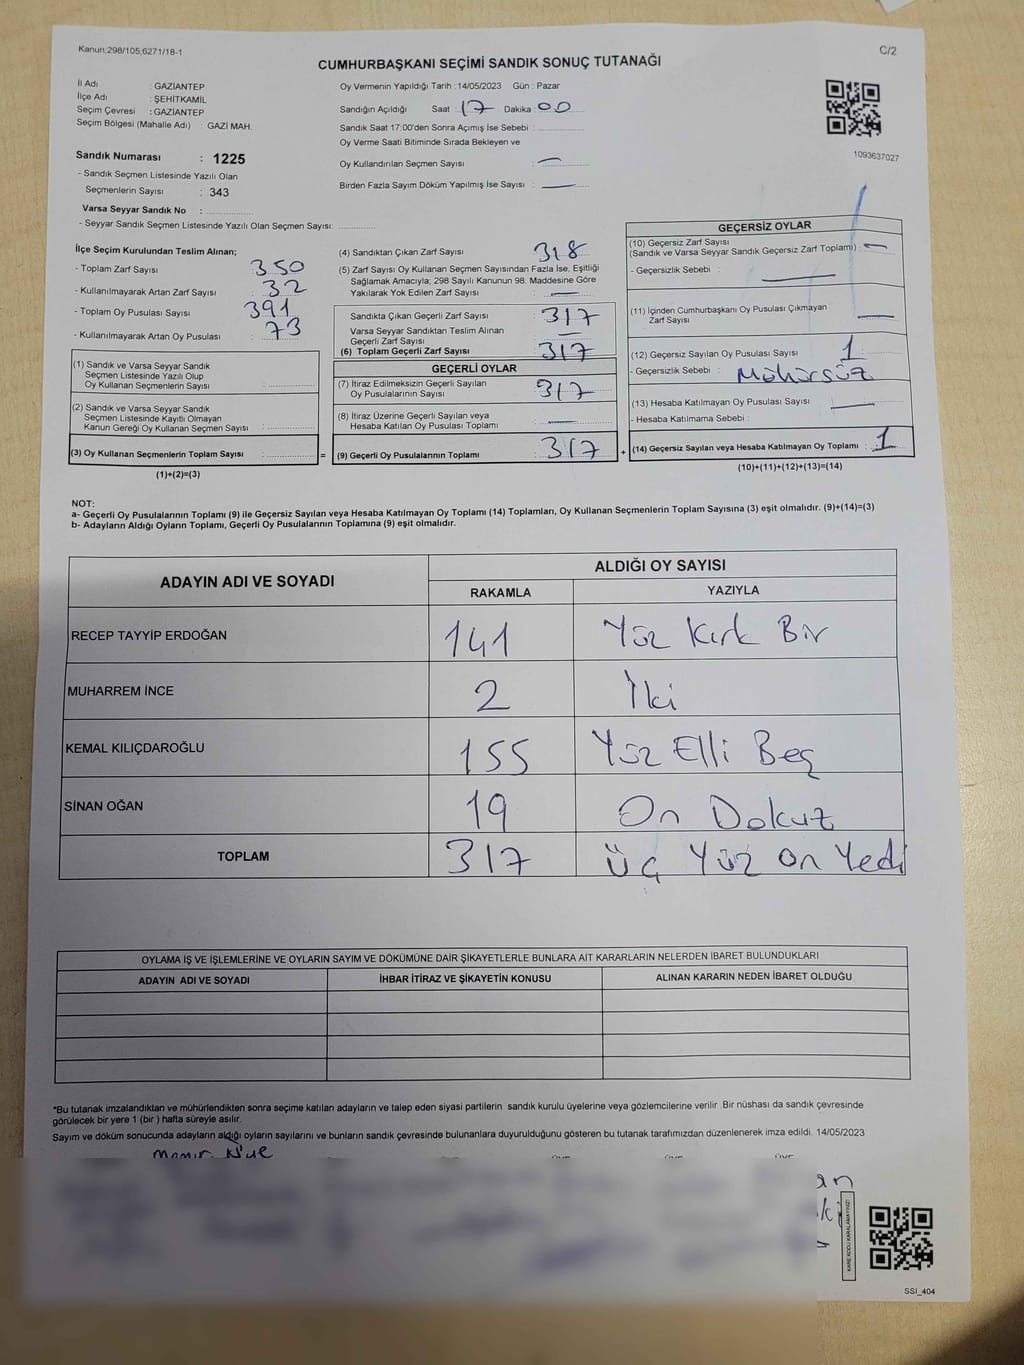 Kanun;298/105,6271/18-1
C/2
CUMHURBAŞKANI SEÇİMİ SANDIK SONUÇ TUTANAĞI
İl Adı : GAZİANTEP
İlçe Adı : ŞEHİTKAMİL
Seçim Çevresi : GAZİANTEP
Seçim Bölgesi (Mahalle Adı) : GAZİ MAH.
Sandık Numarası : 1225
- Sandık Seçmen Listesinde Yazılı Olan
Seçmenlerin Sayısı : 343
Varsa Seyyar Sandık No :
- Seyyar Sandık Seçmen Listesinde Yazılı Olan Seçmen Sayısı:
Oy Vermenin Yapıldığı Tarih : 14/05/2023 Gün : Pazar
Sandığın Açıldığı Saat : 17 Dakika : 00
Sandık Saat 17:00'den Sonra Açımış İse Sebebi :
Oy Verme Saati Bitiminde Sırada Bekleyen ve
Oy Kullandırılan Seçmen Sayısı : —
Birden Fazla Sayım Döküm Yapılmış İse Sayısı : —
1093637027
İlçe Seçim Kurulundan Teslim Alınan;
- Toplam Zarf Sayısı : 350
- Kullanılmayarak Artan Zarf Sayısı : 32
- Toplam Oy Pusulası Sayısı : 391
- Kullanılmayarak Artan Oy Pusulası : 73
(1) Sandık ve Varsa Seyyar Sandık
Seçmen Listesinde Yazılı Olup
Oy Kullanan Seçmenlerin Sayısı :
(2) Sandık ve Varsa Seyyar Sandık
Seçmen Listesinde Kayıtlı Olmayan
Kanun Gereği Oy Kullanan Seçmen Sayısı :
(3) Oy Kullanan Seçmenlerin Toplam Sayısı : =
(1)+(2)=(3)
(4) Sandıktan Çıkan Zarf Sayısı : 318
(5) Zarf Sayısı Oy Kullanan Seçmen Sayısından Fazla İse, Eşitliği
Sağlamak Amacıyla; 298 Sayılı Kanunun 98. Maddesine Göre
Yakılarak Yok Edilen Zarf Sayısı : —
Sandıkta Çıkan Geçerli Zarf Sayısı : 317
Varsa Seyyar Sandıktan Teslim Alınan
Geçerli Zarf Sayısı : —
(6) Toplam Geçerli Zarf Sayısı : 317
GEÇERLİ OYLAR
(7) İtiraz Edilmeksizin Geçerli Sayılan
Oy Pusulalarının Sayısı : 317
(8) İtiraz Üzerine Geçerli Sayılan veya
Hesaba Katılan Oy Pusulası Toplamı : —
(9) Geçerli Oy Pusulalarının Toplamı : 317 +
GEÇERSİZ OYLAR
(10) Geçersiz Zarf Sayısı
(Sandık ve Varsa Seyyar Sandık Geçersiz Zarf Toplamı) : —
- Geçersizlik Sebebi : —
(11) İçinden Cumhurbaşkanı Oy Pusulası Çıkmayan
Zarf Sayısı : —
(12) Geçersiz Sayılan Oy Pusulası Sayısı : 1
- Geçersizlik Sebebi : Mühürsüz
(13) Hesaba Katılmayan Oy Pusulası Sayısı : —
- Hesaba Katılmama Sebebi :
(14) Geçersiz Sayılan veya Hesaba Katılmayan Oy Toplamı : 1
(10)+(11)+(12)+(13)=(14)
NOT:
a- Geçerli Oy Pusulalarının Toplamı (9) ile Geçersiz Sayılan veya Hesaba Katılmayan Oy Toplamı (14) Toplamları, Oy Kullanan Seçmenlerin Toplam Sayısına (3) eşit olmalıdır. (9)+(14)=(3)
b- Adayların Aldığı Oyların Toplamı, Geçerli Oy Pusulalarının Toplamına (9) eşit olmalıdır.
ADAYIN ADI VE SOYADI
ALDIĞI OY SAYISI
RAKAMLA YAZIYLA
RECEP TAYYİP ERDOĞAN 141 Yüz Kırk Bir
MUHARREM İNCE 2 İki
KEMAL KILIÇDAROĞLU 155 Yüz Elli Beş
SİNAN OĞAN 19 On Dokuz
TOPLAM 317 Üç Yüz On Yedi
OYLAMA İŞ VE İŞLEMLERİNE VE OYLARIN SAYIM VE DÖKÜMÜNE DAİR ŞİKAYETLERLE BUNLARA AİT KARARLARIN NELERDEN İBARET BULUNDUKLARI
ADAYIN ADI VE SOYADI İHBAR İTİRAZ VE ŞİKAYETİN KONUSU ALINAN KARARIN NEDEN İBARET OLDUĞU
*Bu tutanak imzalandıktan ve mühürlendikten sonra seçime katılan adayların ve talep eden siyasi partilerin sandık kurulu üyelerine veya gözlemcilerine verilir .Bir nüshası da sandık çevresinde
görülecek bir yere 1 (bir ) hafta süreyle asılır.
Sayım ve döküm sonucunda adayların aldığı oyların sayılarını ve bunların sandık çevresinde bulunanlara duyurulduğunu gösteren bu tutanak tarafımızdan düzenlenerek imza edildi. 14/05/2023
KARE KODU KARALAMAYINIZ!
SSI_404